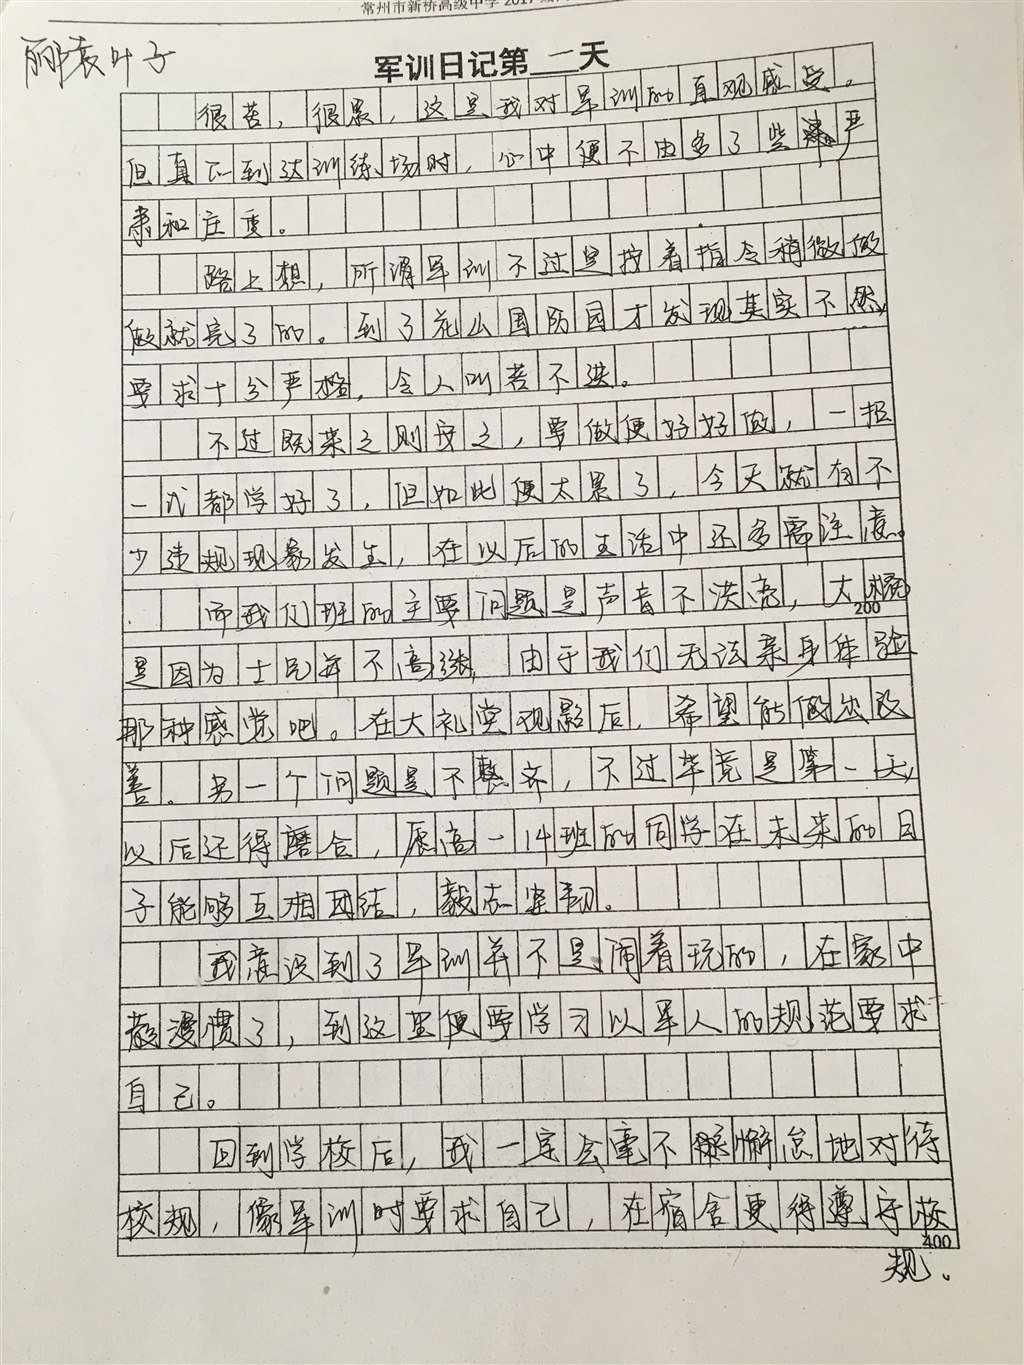 常州市新桥高级中学2017级
郦袁叶子
军训日记第一天
很苦，很累，这是我对军训的直观感受。
但真正到达训练场时，心中便不由多了些严
肃和庄重。
路上想，所谓军训不过是按着指令稍微做
做就完了的。到了花山国防园才发现其实不然，
要求十分严格，令人叫苦不迭。
不过既来之则安之，要做便好好做，一招
一式都学好了，但如此便太累了，今天就有不
少违规现象发生，在以后的生活中还多需注意。
而我们班的主要问题是声音不洪亮，大概
200
是因为士气并不高涨，由于我们无法亲身体验
那种感觉吧。在大礼堂观影后，希望能做出改
善。另一个问题是不整齐，不过毕竟是第一天，
以后还得磨合，愿高一14班的同学在未来的日
子能够互相团结，毅志坚韧。
我意识到了军训并不是闹着玩的，在家中
散漫惯了，到这里便要学习以军人的规范要求
自己。
回到学校后，我一定会毫不懈怠地对待
校规，像军训时要求自己，在宿舍更得遵守校
400
规。